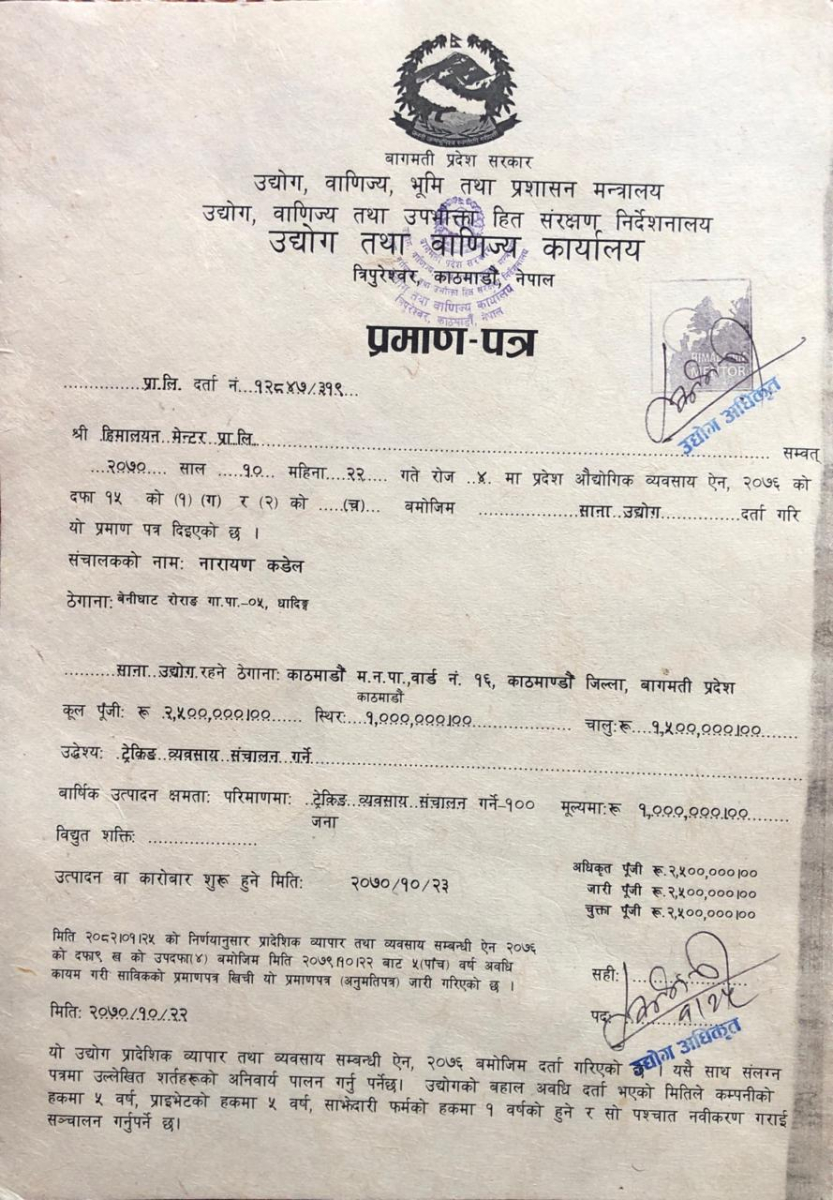 बागमती प्रदेश सरकार
उद्योग, वाणिज्य, भूमि तथा प्रशासन मन्त्रालय
उद्योग, वाणिज्य तथा उपभोक्ता हित संरक्षण निर्देशनालय
उद्योग तथा वाणिज्य कार्यालय
त्रिपुरेश्वर, काठमाडौं, नेपाल
प्रमाण-पत्र
HIMALAYAN
MENTOR
उद्योग अधिकृत
...............प्रा.लि. दर्ता नं...१२८४७/३१९...
श्री हिमालयन मेन्टर प्रा.लि............................ सम्वत्
...२०७०.... साल ....१०... महिना..२२.... गते रोज ..४. मा प्रदेश औद्योगिक व्यवसाय ऐन, २०७६ को
दफा १५ को (१) (ग) र (२) को ....(च)... बमोजिम ...............साना..उद्योग..............दर्ता गरि
यो प्रमाण पत्र दिइएको छ ।
संचालकको नाम: नारायण कडेल
ठेगाना: बेनीघाट रोराङ गा.पा.-०५, धादिङ्ग
.........साना..उद्योग.रहने ठेगाना: काठमाडौं म.न.पा.,वार्ड नं. १६, काठमाण्डौं जिल्ला, बागमती प्रदेश
काठमाडौं
कूल पूँजी: रू २,५००,०००।००...... स्थिर:...१,०००,०००।००.......... चालु:रू...१,५००,०००।००
उद्धेश्य: .ट्रेकिङ..व्यवसाय..संचालन..गर्ने.............................
वार्षिक उत्पादन क्षमता: परिमाणमा: ..ट्रेकिङ...व्यवसाय..संचालन..गर्ने-१०० मूल्यमा:रू १,०००,०००।००......
जना
विद्युत शक्ति: ...................
उत्पादन वा कारोबार शुरू हुने मिति: २०७०/१०/२३
अधिकृत पूँजी रू.२,५००,०००।००
जारी पूँजी रू.२,५००,०००।००
चुक्ता पूँजी रू.२,५००,०००।००
मिति २०८२।०१।२५ को निर्णयानुसार प्रादेशिक व्यापार तथा व्यवसाय सम्बन्धी ऐन २०७६
को दफा९ ख को उपदफा(४) बमोजिम मिति २०७९।१०।२२ बाट ५(पाँच) वर्ष अवधि
कायम गरी साविकको प्रमाणपत्र खिची यो प्रमाणपत्र (अनुमतिपत्र) जारी गरिएको छ ।
सही:....................
मिति: २०७०/१०/२२
पद: १/२५
उद्योग अधिकृत
यो उद्योग प्रादेशिक व्यापार तथा व्यवसाय सम्बन्धी ऐन, २०७६ बमोजिम दर्ता गरिएको छ । यसै साथ संलग्न
पत्रमा उल्लेखित शर्तहरूको अनिवार्य पालन गर्नु पर्नेछ। उद्योगको बहाल अवधि दर्ता भएको मितिले कम्पनीको
हकमा ५ वर्ष, प्राइभेटको हकमा ५ वर्ष, साझेदारी फर्मको हकमा १ वर्षको हुने र सो पश्चात नवीकरण गराई
सञ्चालन गर्नुपर्ने छ।